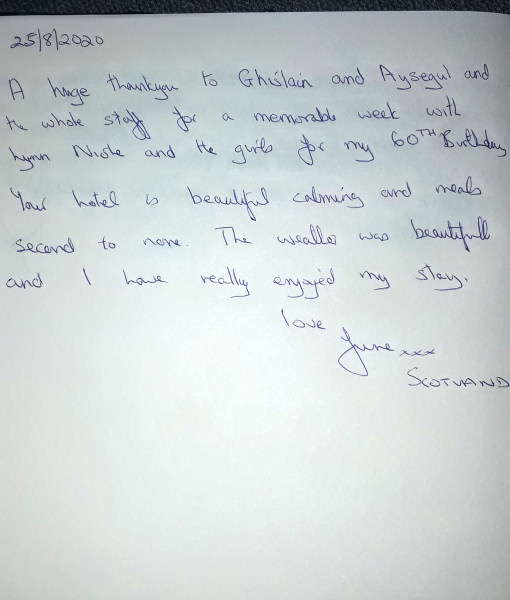 25/8/2020
A huge thankyou to Ghislain and Aysegul and
the whole staff for a memorable week with
Lynn Nicole and the girls for my 60TH Birthday
Your hotel is beautiful calming and meals
second to none. The weather was beautifull
and I have really enjoyed my stay.
love
June xxx
SCOTLAND